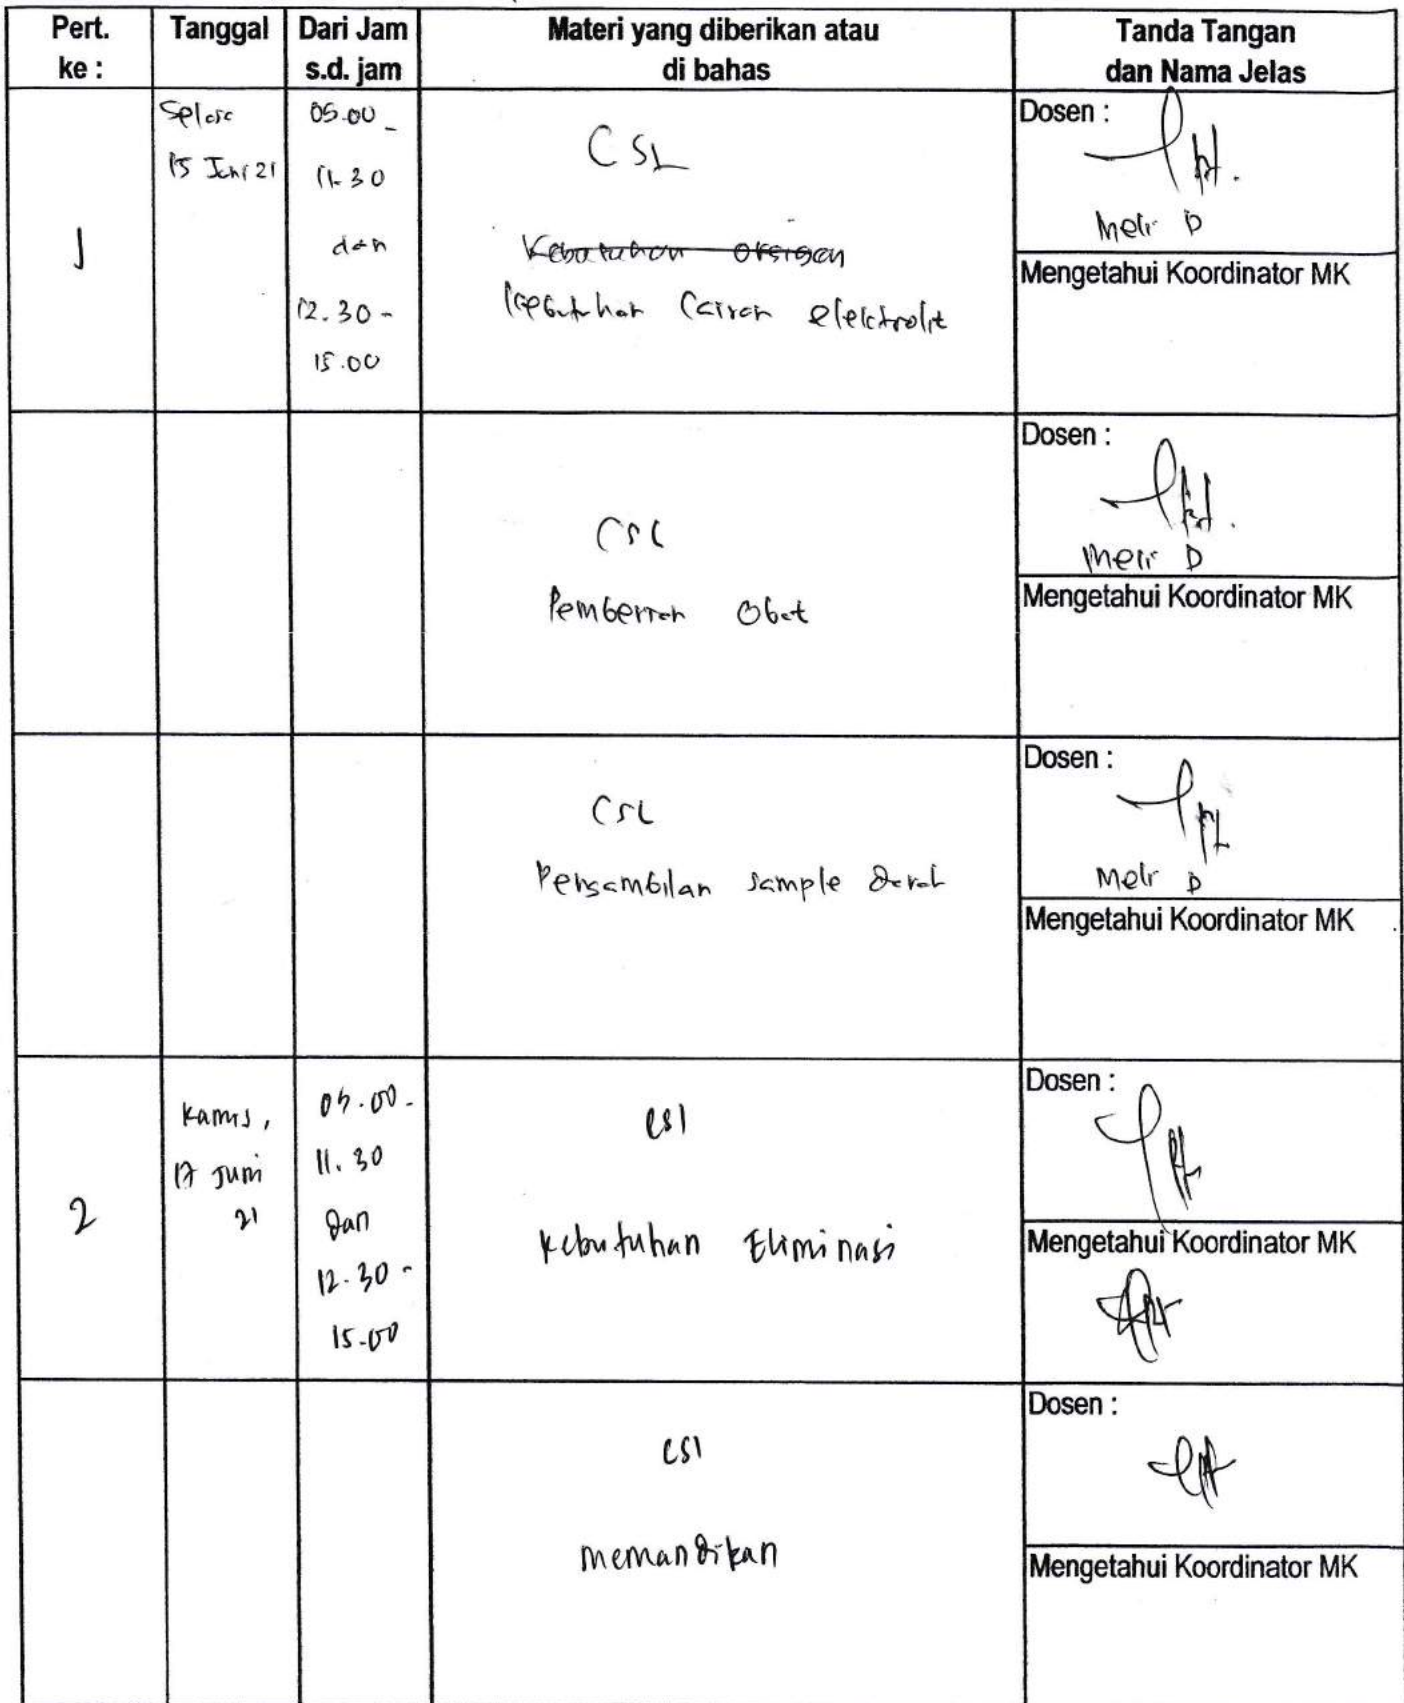 Pert. ke :
Tanggal
Dari Jam s.d. jam
Materi yang diberikan atau di bahas
Tanda Tangan dan Nama Jelas
1
Selasa
15 Juni 21
09.00 -
11.30
dan
12.30 -
15.00
CSL
Kebutuhan Oksigen
Kebutuhan Cairan elektrolit
Dosen :
Meli D
Mengetahui Koordinator MK
CSL
Pemberian Obat
Dosen :
Meli D
Mengetahui Koordinator MK
CSL
Pengambilan sample darah
Dosen :
Meli D
Mengetahui Koordinator MK
2
Kamis,
17 Juni
21
09.00 -
11.30
dan
12.30 -
15.00
CSl
Kebutuhan Eliminasi
Dosen :
Mengetahui Koordinator MK
CSl
memandikan
Dosen :
Mengetahui Koordinator MK